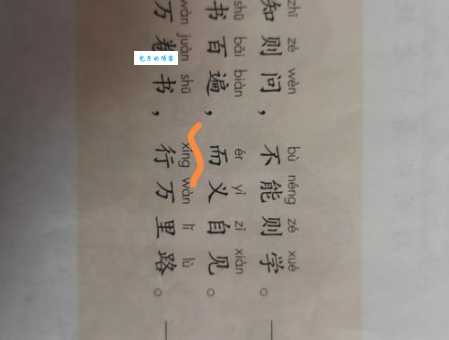 zhī zé wèn bù néng zé xué
知则问，不能则学。
shū bǎi biàn ér yì zì xiàn
书百遍，而义自见。
wàn juàn shū xíng wàn lǐ lù
万卷书，行万里路。